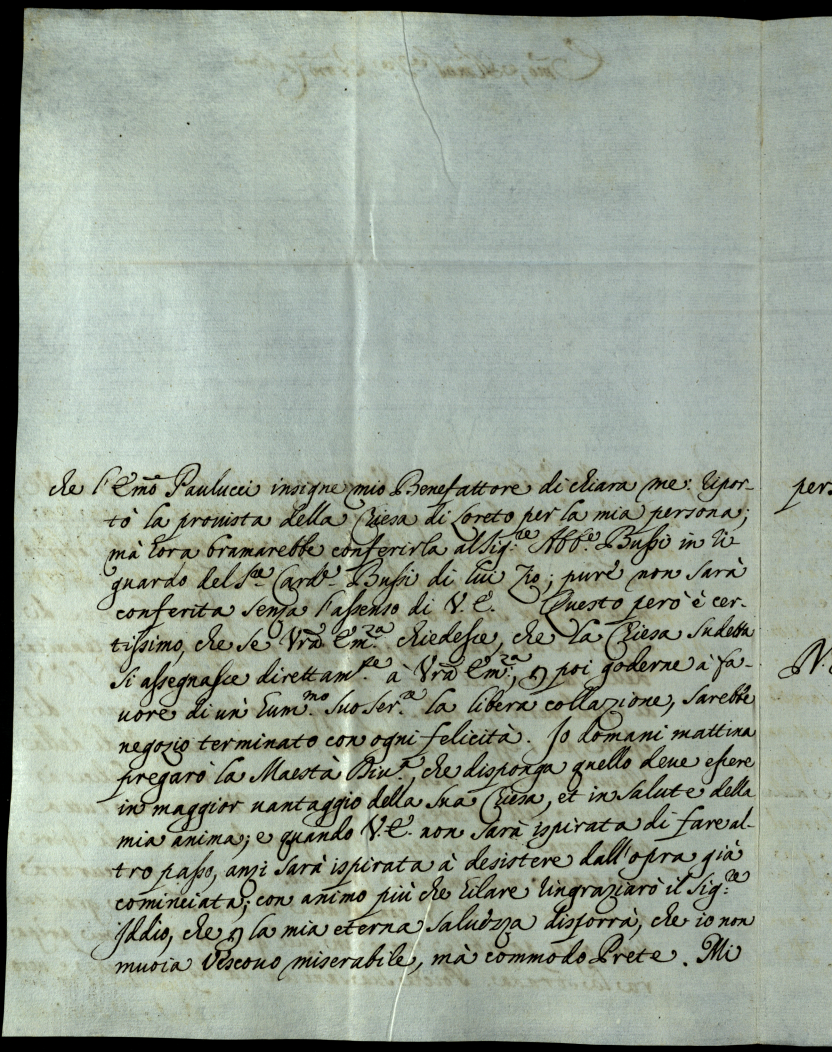 che l'Emo Paulucci insigne mio Benefattore di chiara me: ripor-
tò la provista della Chiesa di Loreto per la mia persona;
mà hora bramarebbe conferirla al Sig.re Abb.e Bussi in ri-
guardo del S.re Card.e Bussi di lui Zio; pure non sarà
conferita senza l'assenso di V. E. Questo però è cer-
tissimo, che se Vrã Em.za chiedesse, che la Chiesa sudetta
si assegnasse direttam.te à Vrã Em.za, e poi goderne à fa-
vore di un' hum.mo suo Ser.re la libera collazione, sarebbe
negozio terminato con ogni felicità. Io domani mattina
pregarò la Maestà Div.a, che disponga quello deve essere
in maggior vantaggio della sua Chiesa, et in salute della
mia anima; e quando V. E. non sarà ispirata di fare al-
tro passo, anzi sarà ispirata à desistere dall'opra già
cominciata; con animo più che hilare ringraziarò il Sig.re
Iddio, che la mia eterna salvezza disporrà, che io non
muoia Vescovo miserabile, mà commodo Prete. Mi